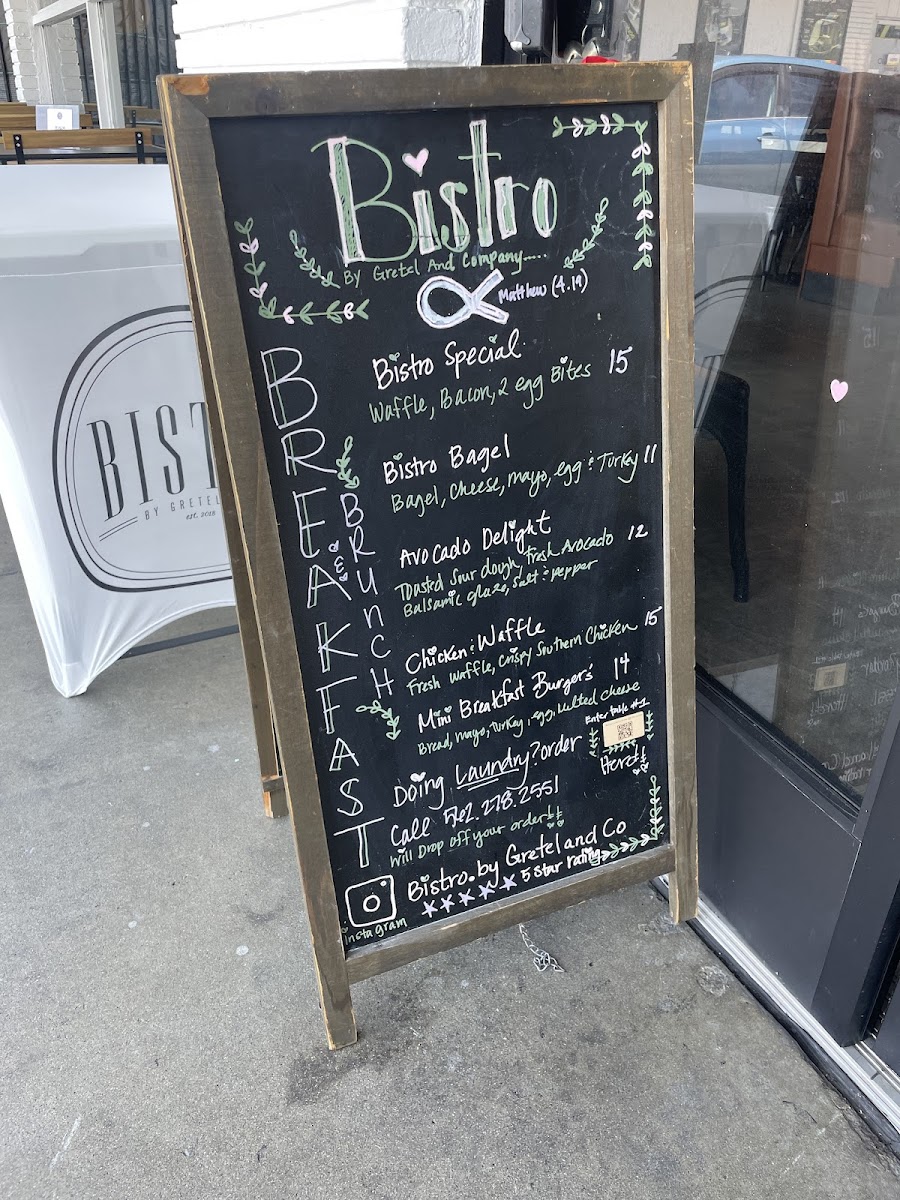 Bistro
By Gretel And Company.....
Matthew (4.19)
BREAKFAST
&
BRunCH
Bistro Special
Waffle, Bacon, 2 egg Bites 15
Bistro Bagel
Bagel, cheese, mayo, egg & Turkey 11
Avocado Delight
Toasted Sour dough, Fresh Avocado 12
Balsamic glaze, salt & pepper
Chicken & Waffle
Fresh Waffle, Crispy Southern Chicken 15
Mini Breakfast Burger's 14
Bread, mayo, Turkey, egg, Melted cheese
Enter table #1
Doing Laundry? order
Here!!
Call 562.278.2551
Will Drop off your order!!
Bistro.by Gretel and Co
5 Star rating
Instagram
BIST
BY GRETEL
est. 2018